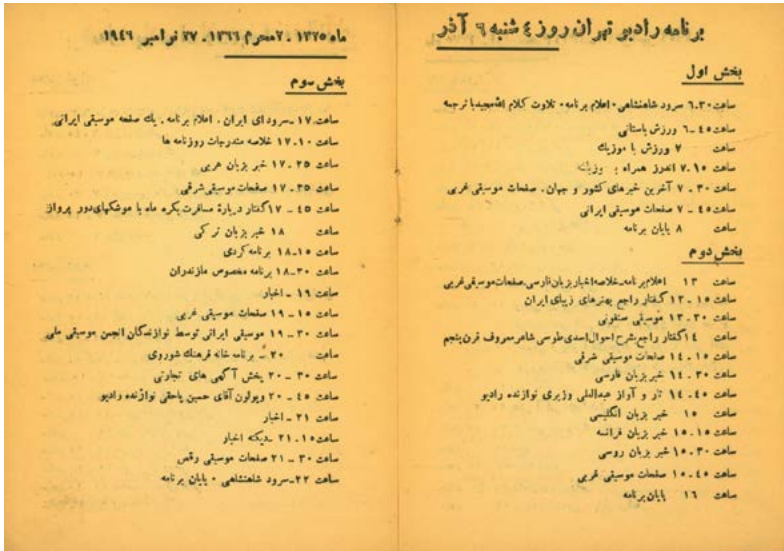 برنامه رادیو تهران روز ٤ شنبه ٦ آذر
بخش اول
ساعت ٦٫٣٠ سرود شاهنشاهی ٠ اعلام برنامه ٠ تلاوت کلام الله مجید با ترجمه
ساعت ٤٥ـ٦ ورزش باستانی
ساعت ٧ ورزش با موزیك
ساعت ٧٫١٥ اندرز همراه با موزیك
ساعت ٣٠ ـ ٧ آخرین خبرهای کشور و جهان ٠ صفحات موسیقی غربی
ساعت ٤٥ ـ ٧ صفحات موسیقی ایرانی
ساعت ٨ پایان برنامه
بخش دوم
ساعت ١٣ اعلام برنامه ـ خلاصه اخبار بزبان فارسی ـ صفحات موسیقی غربی
ساعت ١٥ ـ ١٣ گفتار راجع بهنرهای زیبای ایران
ساعت ٣٠ ـ ١٣ موسیقی سنفونی
ساعت ١٤ گفتار راجع بشرح احوال اسدی طوسی شاعر معروف قرن پنجم
ساعت ١٥ ـ ١٤ صفحات موسیقی شرقی
ساعت ٣٠ ـ ١٤ خبر بزبان فارسی
ساعت ٤٥ ـ ١٤ تار و آواز عبدالعلی وزیری نوازنده رادیو
ساعت ١٥ خبر بزبان انگلیسی
ساعت ١٥ ـ ١٥ خبر بزبان فرانسه
ساعت ٣٠ ـ ١٥ خبر بزبان روسی
ساعت ٤٥ ـ ١٥ صفحات موسیقی غربی
ساعت ١٦ پایان برنامه
ماه ١٣٢٥ ٠ ٢ محرم ١٣٦٦ ٠ ٢٧ نوامبر ١٩٤٦
بخش سوم
ساعت ١٧ ـ سرود ای ایران ٠ اعلام برنامه ٠ یك صفحه موسیقی ایرانی
ساعت ١٧٫١٠ خلاصه مندرجات روزنامه ها
ساعت ٢٥ ـ ١٧ خبر بزبان عربی
ساعت ٣٥ ـ ١٧ صفحات موسیقی شرقی
ساعت ٤٥ ـ ١٧ گفتار دربارهٔ مسافرت بکره ماه با موشکهای دور پرواز
ساعت ١٨ خبر بزبان ترکی
ساعت ١٥ ـ ١٨ برنامه کردی
ساعت ٣٠ ـ ١٨ برنامه مخصوص مازندران
ساعت ١٩ ـ اخبار
ساعت ١٥ ـ ١٩ صفحات موسیقی غربی
ساعت ٣٠ ـ ١٩ موسیقی ایرانی توسط نوازندگان انجمن موسیقی ملی
ساعت ٢٠ ـ برنامه خانه فرهنك شوروی
ساعت ٣٠ ـ ٢٠ پخش آگهی های تجارتی
ساعت ٤٥ ـ ٢٠ ویولون آقای حسین یاحقی نوازنده رادیو
ساعت ٢١ ـ اخبار
ساعت ١٥ ـ ٢١ ـ دیکته اخبار
ساعت ٣٠ ـ ٢١ صفحات موسیقی رقص
ساعت ٢٢ ـ سرود شاهنشاهی ٠ پایان برنامه